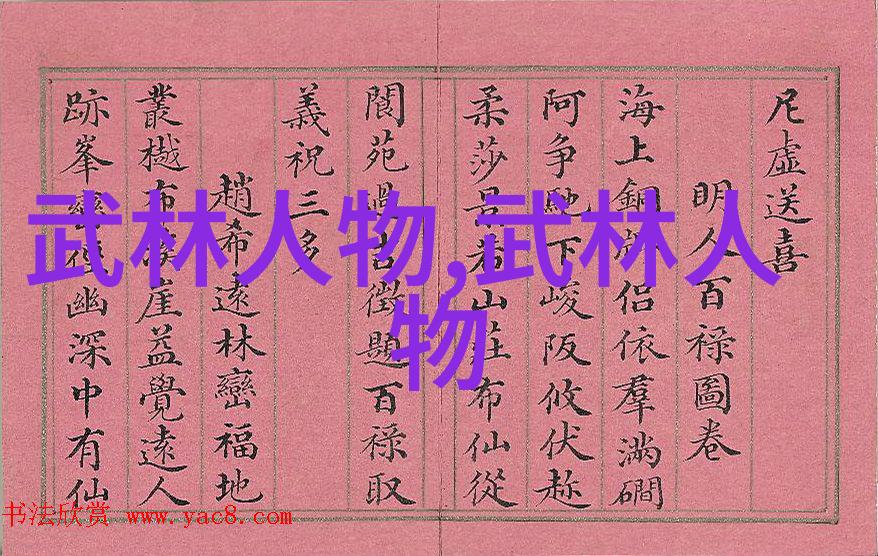 尼虛送喜
明人百祿圖卷
海上銅侶依羣滿磵
阿争馳下峻阪攸伏趂
柔莎是山莊布仙從
閬苑過古徵題百祿取
義祝三多
趙希遠林巒福地
叢樾布崖益覺遠人
跡峯巒徑幽深中有仙
武林人物,武林人
物
书法欣赏 www.yac8.com